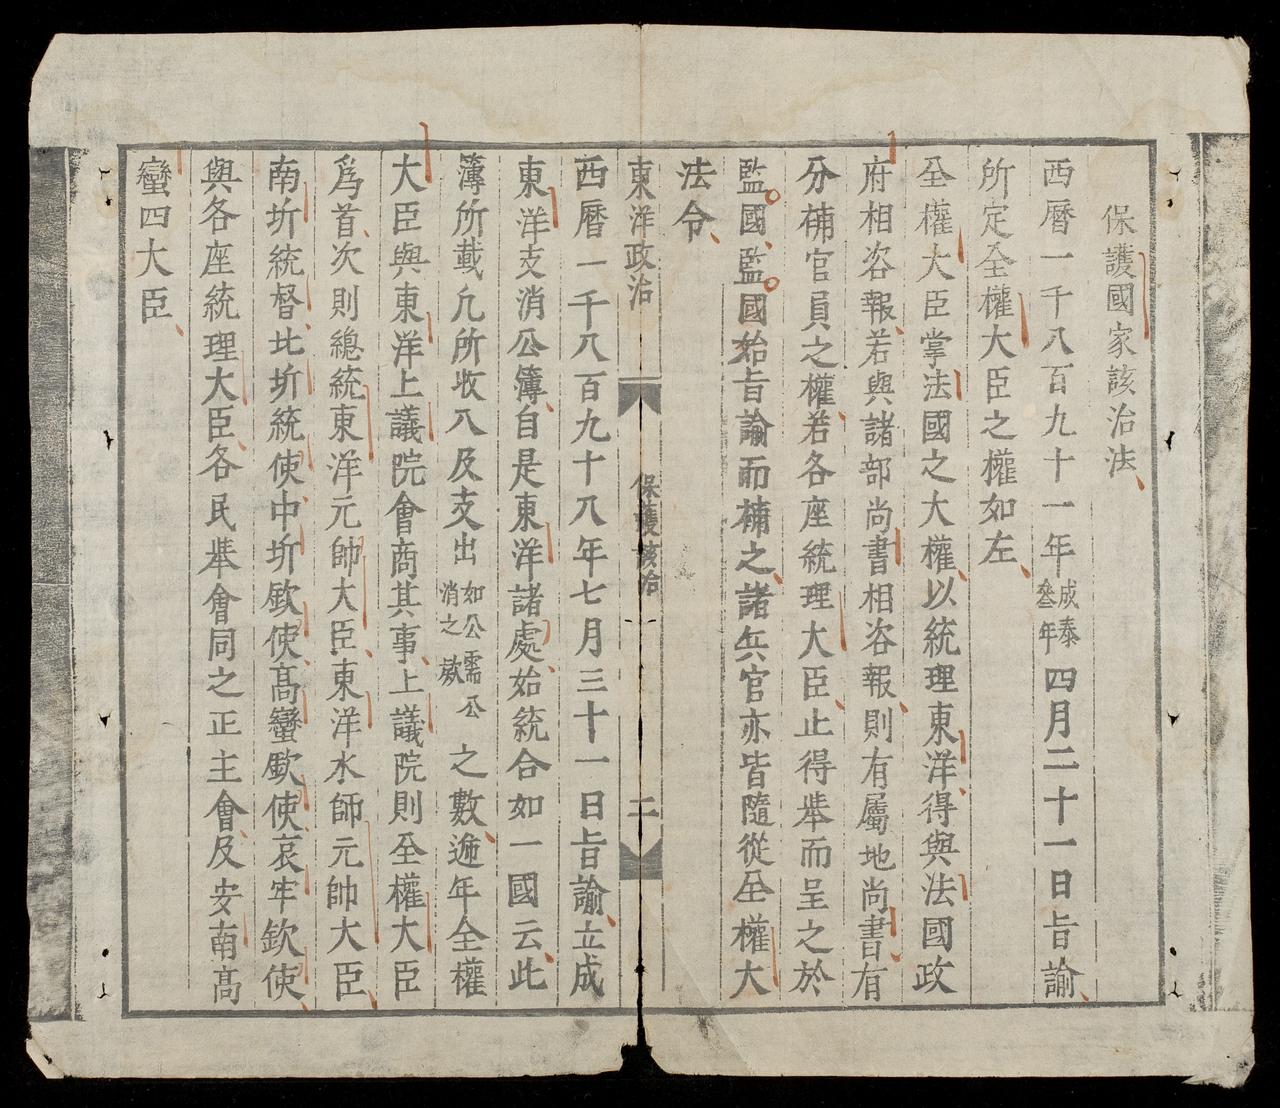 保護國家該治法
西曆一千八百九十一年成泰叄年四月二十一日旨諭
所定全權大臣之權如左
全權大臣掌法國之大權以統理東洋得與法國政
府相咨報若與諸部尚書相咨報則有屬地尚書有
分補官員之權若各座統理大臣止得举而呈之於
監國監國始旨諭而補之諸兵官亦皆隨從全權大
法令
東洋政治
保護該治
二
西曆一千八百九十八年七月三十一日旨諭立成
東洋支消公簿自是東洋諸處始統合如一國云此
簿所載凢所收入及支出如公需公消之欵之數遞年全權
大臣與東洋上議院會商其事上議院則全權大臣
爲首次則總統東洋元帥大臣東洋水師元帥大臣
南圻統督北圻統使中圻欽使高蠻欽使哀牢欽使
與各座統理大臣各民举會同之正主會及安南高
蠻四大臣